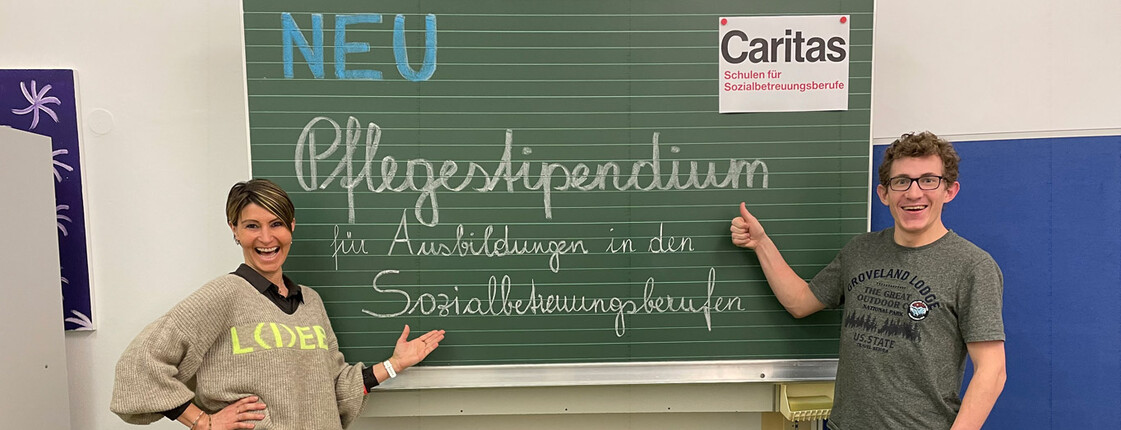 NEU
Caritas
Schulen für
Sozialbetreuungsberufe
Pflegestipendium
für Ausbildungen in den
Sozialbetreuungsberufen
GROVELAND LODGE
THE GREAT
OUTDOOR
NATIONAL PARK
U.S. STATE